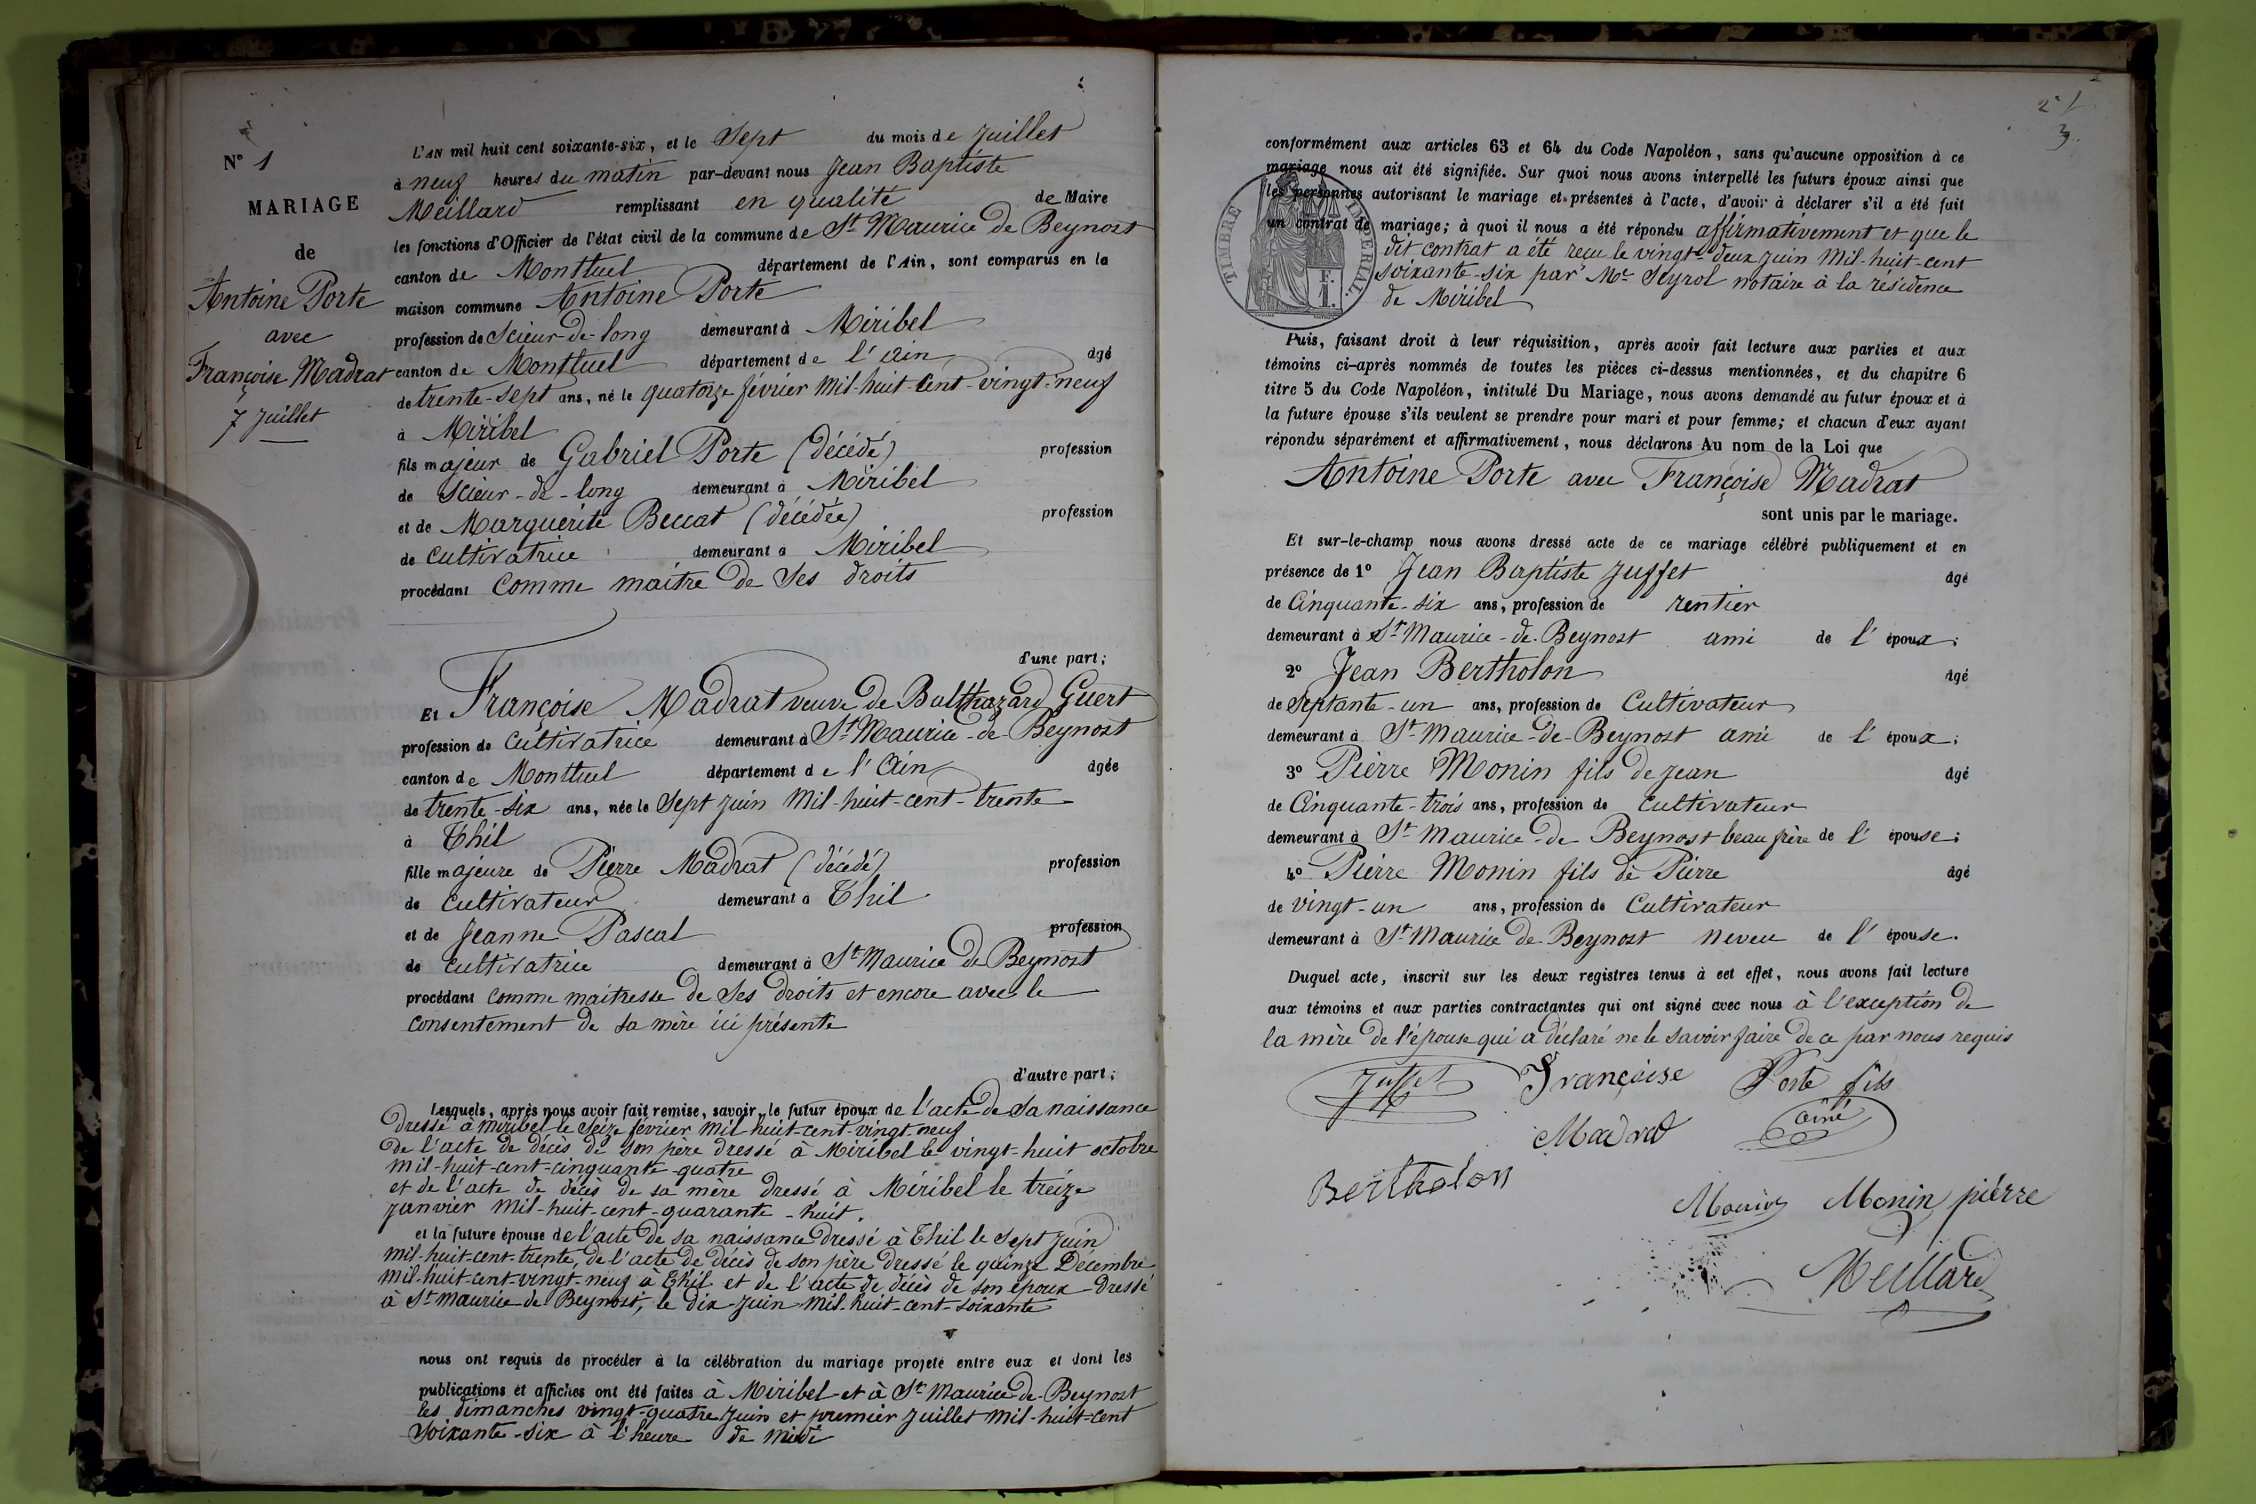 N° 1
MARIAGE
de
Antoine Porte
avec
Françoise Madrat
7 Juillet
L'AN mil huit cent soixante-six, et le Sept du mois de Juillet
à neuf heures du matin par-devant nous Jean Baptiste
Meillard remplissant en qualité de Maire
les fonctions d'Officier de l'état civil de la commune de St Maurice de Beynost
canton de Montluel département de l'Ain, sont comparus en la
maison commune Antoine Porte
profession de Scieur-de-long demeurant à Miribel
canton de Montluel département de l'Ain âgé
de trente-sept ans, né le quatorze février mil-huit-cent-vingt-neuf
à Miribel
fils majeur de Gabriel Porte (décédé) profession
de scieur-de-long demeurant à Miribel
et de Marguerite Beccat (décédée) profession
de cultivatrice demeurant à Miribel
procédant comme maitre de ses droits
d'une part;
Et Françoise Madrat veuve de Balthazard Guert
profession de cultivatrice demeurant à St Maurice-de-Beynost
canton de Montluel département de l'Ain âgée
de trente-six ans, née le sept juin mil-huit-cent-trente
à Thil
fille majeure de Pierre Madrat (décédé) profession
de cultivateur demeurant à Thil
et de Jeanne Pascal profession
de cultivatrice demeurant à St Maurice de Beynost
procédant comme maitresse de ses droits et encore avec le
consentement de sa mère ici présente
d'autre part;
Lesquels, après nous avoir fait remise, savoir, le futur époux de l'acte de sa naissance
dressé à Miribel le seize février mil huit-cent-vingt-neuf
de l'acte de décès de son père dressé à Miribel le vingt-huit octobre
mil-huit-cent-cinquante-quatre
et de l'acte de décès de sa mère dressé à Miribel le treize
janvier mil-huit-cent-quarante-huit.
et la future épouse de l'acte de sa naissance dressé à Thil le sept juin
mil-huit-cent-trente, de l'acte de décès de son père dressé le quinze Décembre
mil-huit-cent-vingt-neuf à Thil et de l'acte de décès de son époux dressé
à St Maurice de Beynost, le dix juin mil-huit-cent-soixante
nous ont requis de procéder à la célébration du mariage projeté entre eux et dont les
publications et affiches ont été faites à Miribel et à St Maurice-de-Beynost
les dimanches vingt-quatre juin et premier juillet mil-huit-cent
soixante-six à l'heure de midi
conformément aux articles 63 et 64 du Code Napoléon, sans qu'aucune opposition à ce
mariage nous ait été signifiée. Sur quoi nous avons interpellé les futurs époux ainsi que
les personnes autorisant le mariage et présentes à l'acte, d'avoir à déclarer s'il a été fait
un contrat de mariage; à quoi il nous a été répondu affirmativement et que le
dit contrat a été reçu le vingt-deux juin mil-huit-cent
soixante-six par Me Seyrol notaire à la résidence
de Miribel
TIMBRE IMPERIAL
F.
1.
Puis, faisant droit à leur réquisition, après avoir fait lecture aux parties et aux
témoins ci-après nommés de toutes les pièces ci-dessus mentionnées, et du chapitre 6
titre 5 du Code Napoléon, intitulé Du Mariage, nous avons demandé au futur époux et à
la future épouse s'ils veulent se prendre pour mari et pour femme; et chacun d'eux ayant
répondu séparément et affirmativement, nous déclarons Au nom de la Loi que
Antoine Porte avec Françoise Madrat
sont unis par le mariage.
Et sur-le-champ nous avons dressé acte de ce mariage célébré publiquement et en
présence de 1° Jean Baptiste Juffet âgé
de Cinquante-six ans, profession de rentier
demeurant à St Maurice-de-Beynost ami de l'époux;
2° Jean Bertholon âgé
de Septante-un ans, profession de Cultivateur
demeurant à St Maurice-de-Beynost ami de l'époux;
3° Pierre Monin fils de Jean âgé
de Cinquante-trois ans, profession de cultivateur
demeurant à St Maurice-de Beynost beau frère de l'épouse;
4° Pierre Monin fils de Pierre âgé
de vingt-un ans, profession de Cultivateur
demeurant à St Maurice de Beynost neveu de l'épouse.
Duquel acte, inscrit sur les deux registres tenus à cet effet, nous avons fait lecture
aux témoins et aux parties contractantes qui ont signé avec nous à l'exception de
la mère de l'épouse qui a déclaré ne le savoir faire de ce par nous requis
Juffet Françoise Porte fils
Madrat ainé
Bertholon
Monin Monin pierre
Meillard